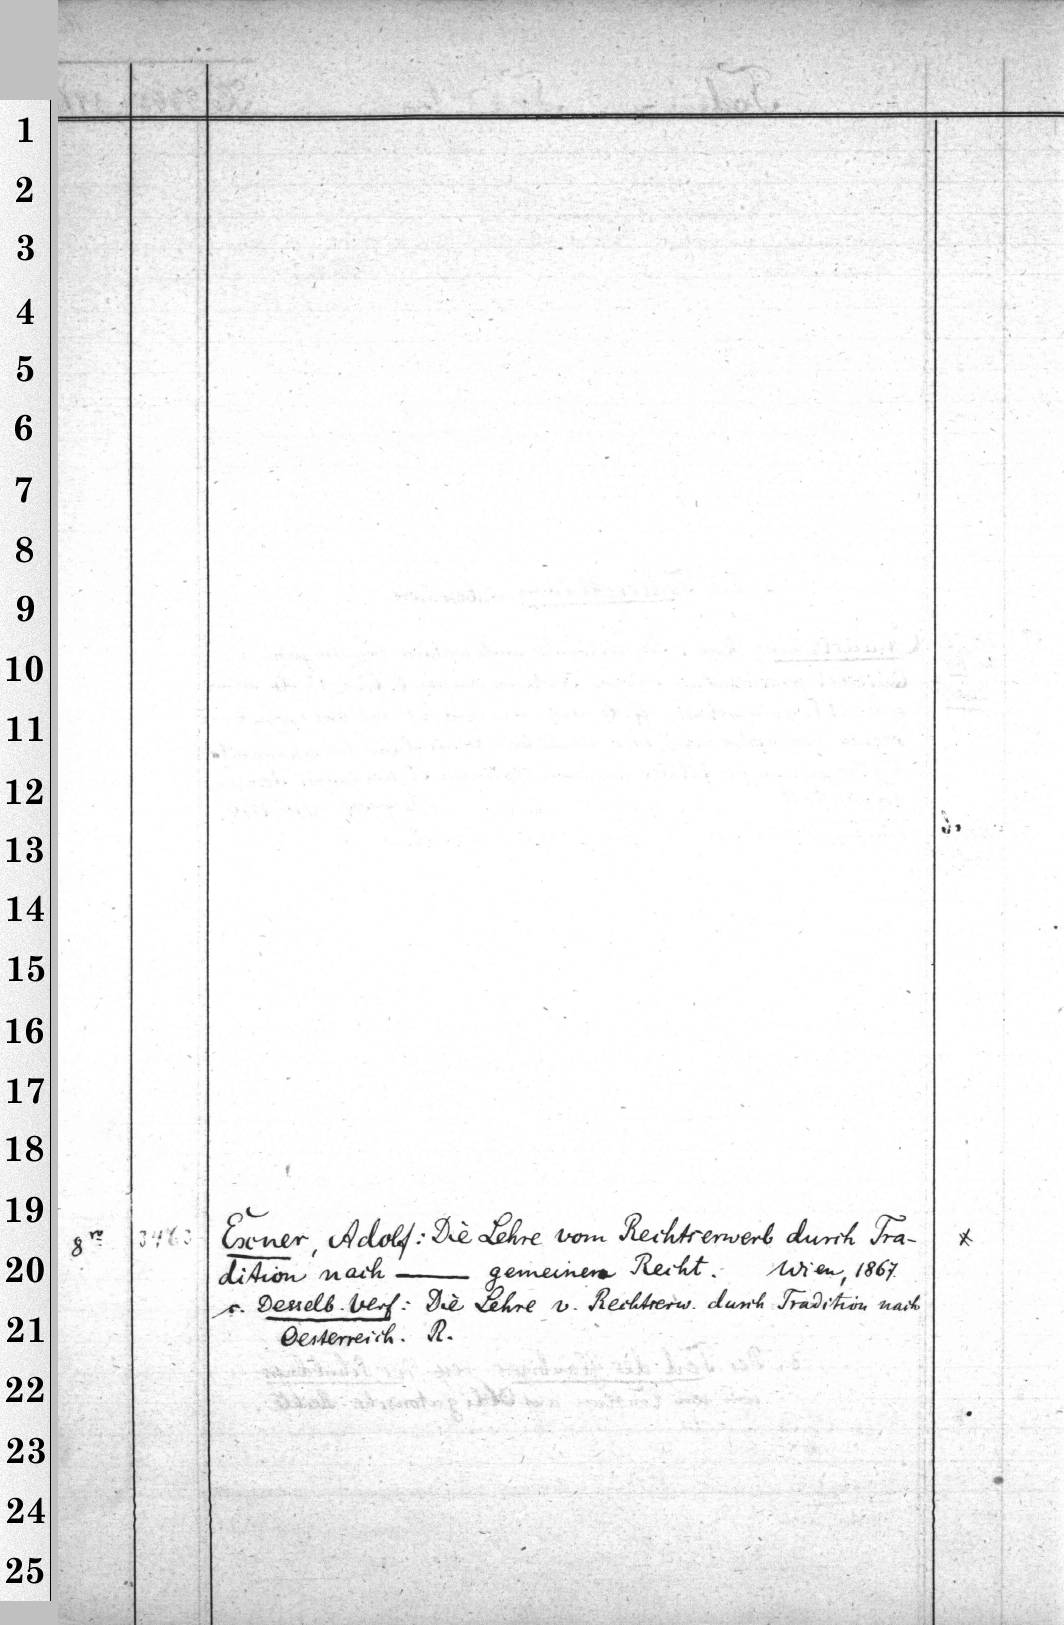 1
2
3
4
5
6
7
8
9
10
11
12
13
14
15
16
17
18
19
8vo 3463 Exner, Adolf: Die Lehre vom Rechtserwerb durch Tra- *
20
dition nach —— gemeinem Recht. Wien, 1867.
s. Desselb. Verf: Die Lehre v. Rechtserw. durch Tradition nach
21
Oesterreich. R.
22
23
24
25